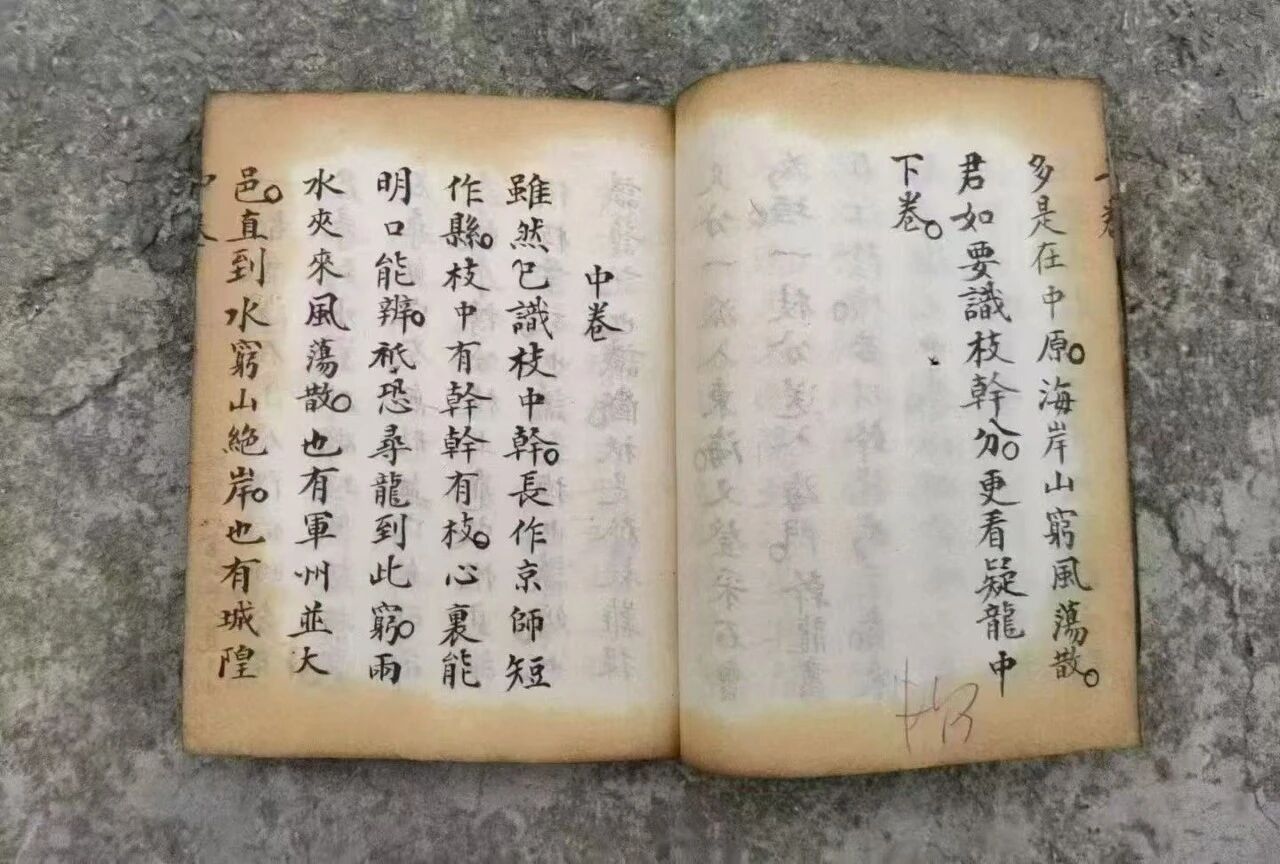 多是在中原。海岸山窮風蕩散。
君如要識枝幹分。更看疑龍中
下卷。
中卷
雖然已識枝中幹。長作京師短
作縣。枝中有幹幹有枝。心裏能
明口能辨。祇恐尋龍到此窮。兩
水夾來風蕩散。也有軍州並大
邑。直到水窮山絕岸。也有城隍